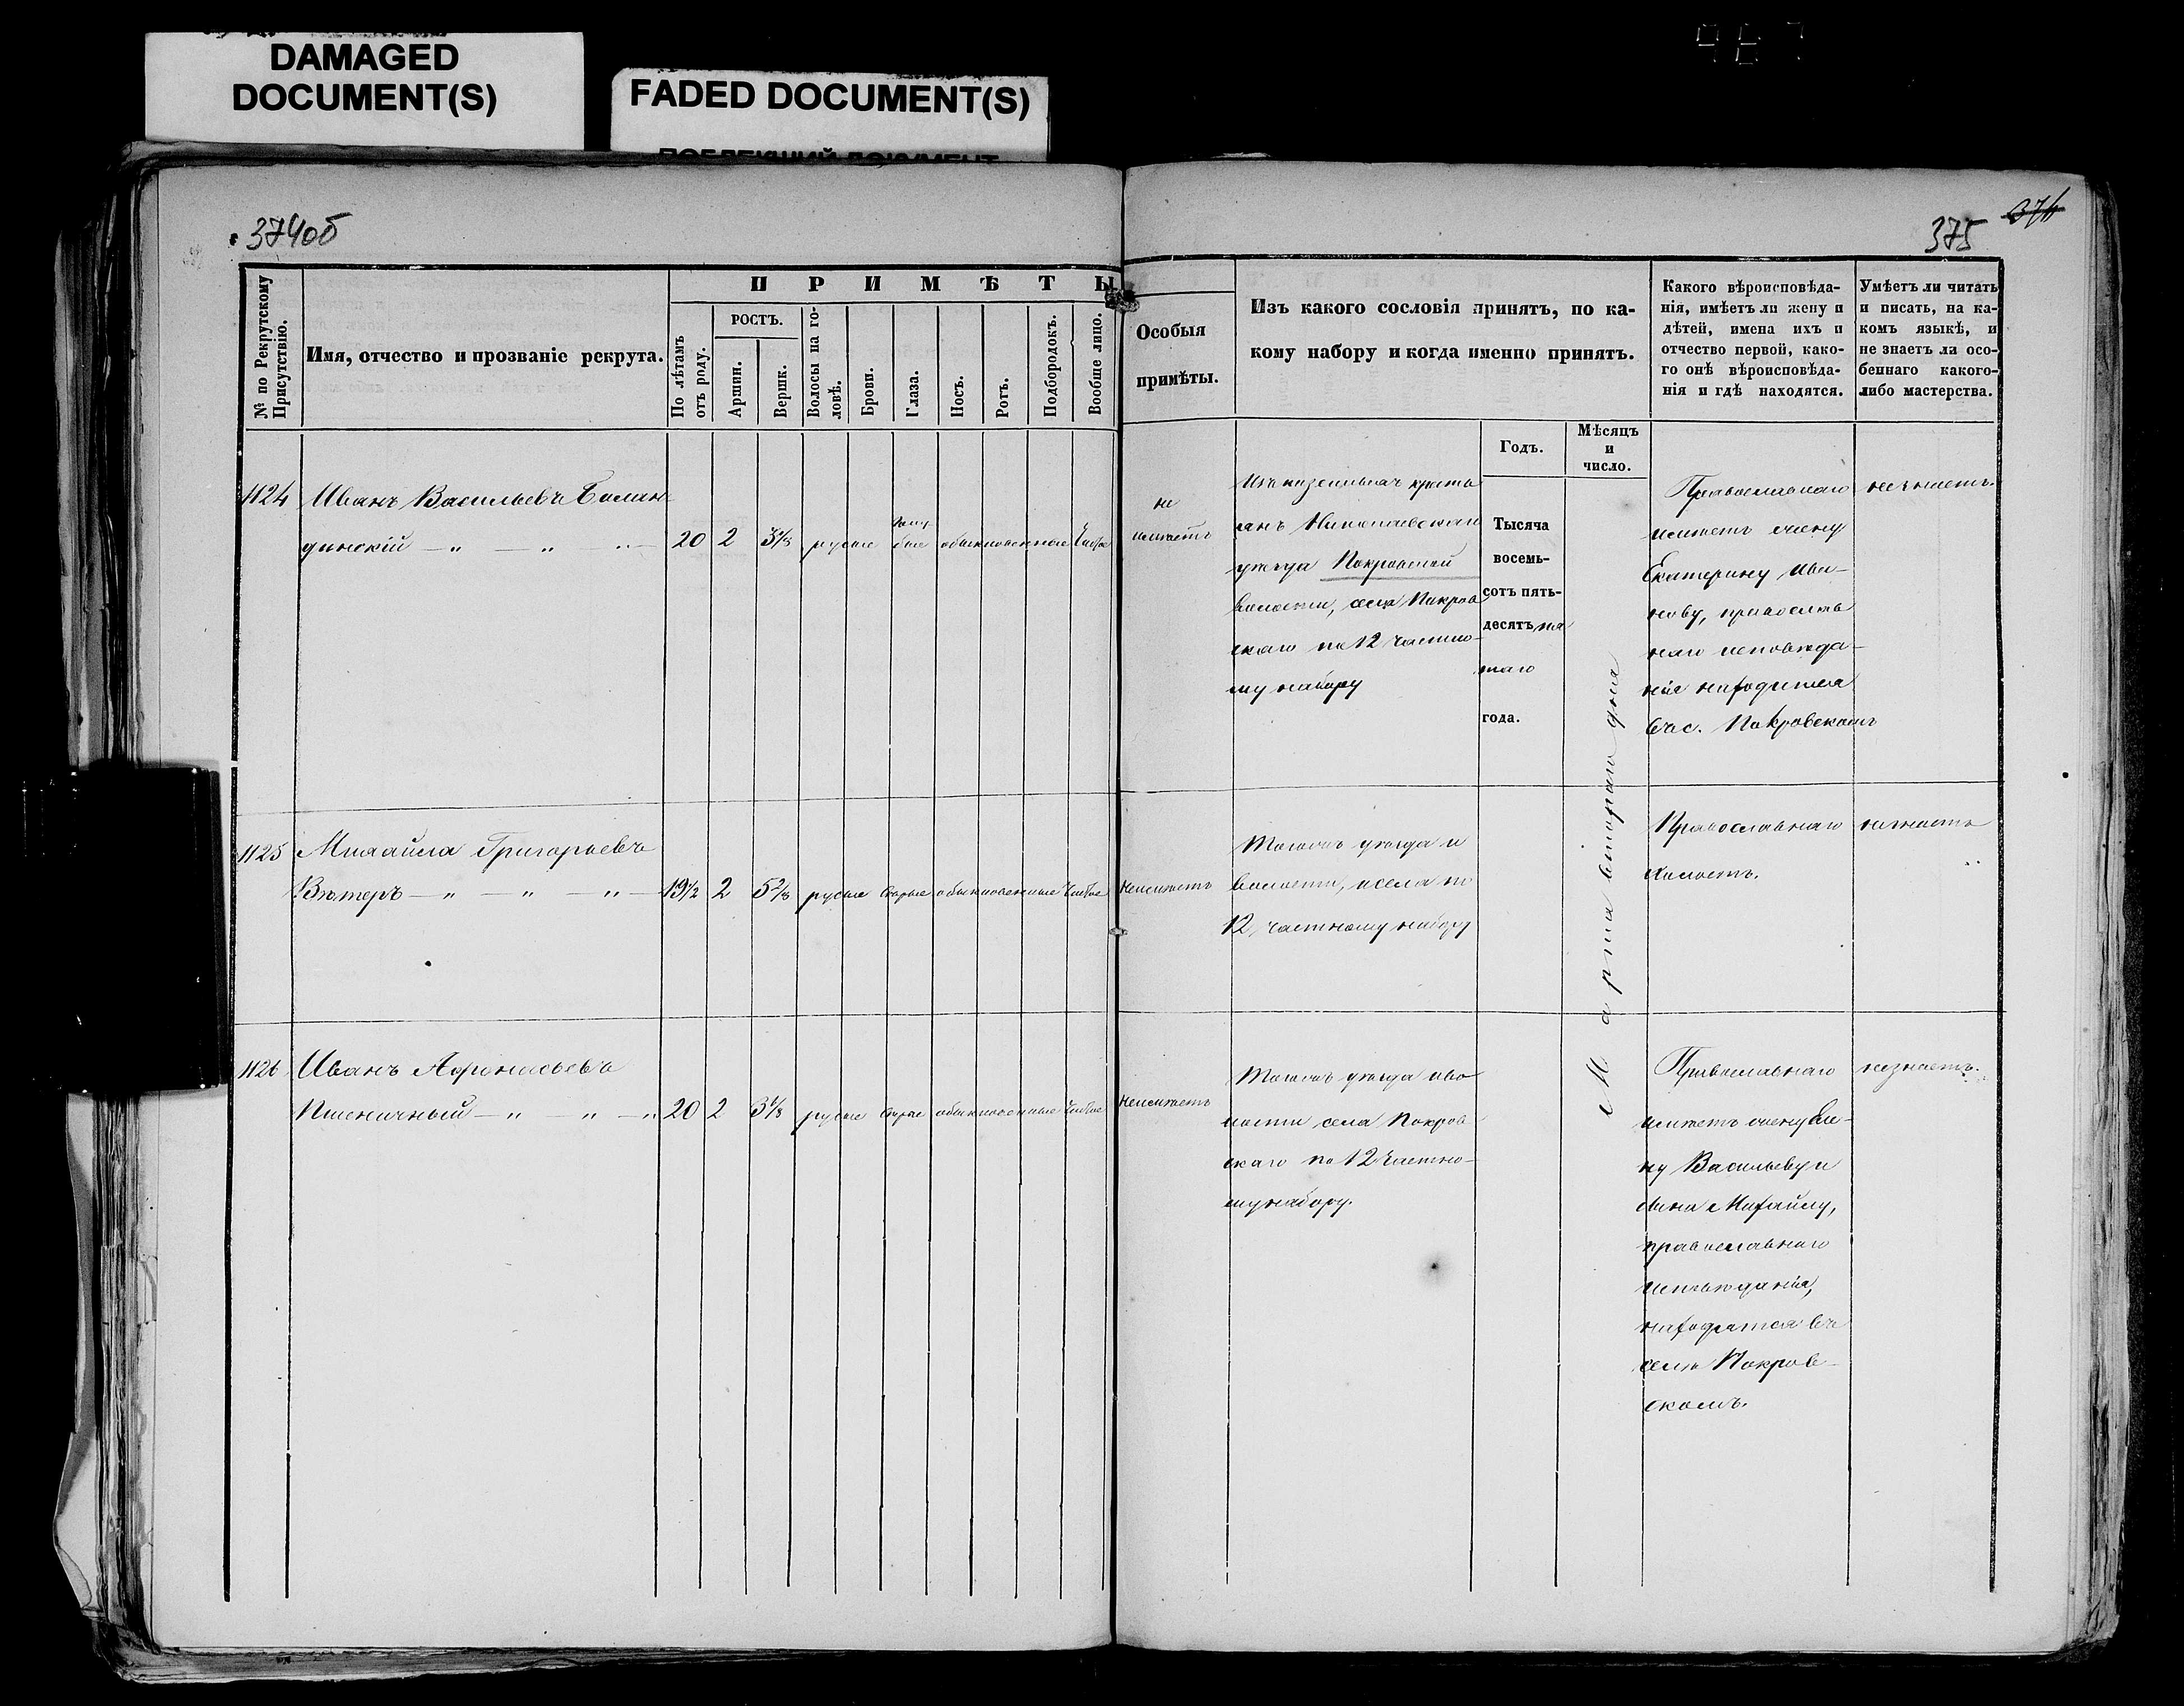 DAMAGED
DOCUMENT(S)
FADED DOCUMENT(S)
374об
375
№ по Рекрутскому
Присутствію.
Имя, отчество и прозваніе рекрута.
ПРИМѢТЫ
По лѣтамъ
отъ роду.
РОСТЪ.
Аршин.
Вершк.
Волосы на го-
ловѣ.
Брови.
Глаза.
Носъ.
Ротъ.
Подбородокъ.
Вообще лицо.
Особыя
примѣты.
Изъ какого сословія принятъ, по ка-
кому набору и когда именно принятъ.
Годъ.
Мѣсяцъ
и
число.
Какого вѣроисповѣда-
нія, имѣетъ ли жену и
дѣтей, имена ихъ и
отчество первой, како-
го онѣ вѣроисповѣда-
нія и гдѣ находятся.
Умѣетъ ли читать
и писать, на ка-
комъ языкѣ, и
не знаетъ ли осо-
беннаго какого-
либо мастерства.
1124
Иванъ Васильевъ
динскій
20 2 3 1/8 русые голу
бые обыкновенные чистое
не
имѣетъ
Изъ казенныхъ кресть
янъ Николаевскаго
уѣзда Покровской
волости, села Покров
скаго по 12 частно-
му набору
Тысяча
восемь-
сотъ пять-
десятъ пя
таго
года.
Марта втораго дня
Православнаго
имѣетъ жену
Екатерину Ива-
нову, православ
наго исповѣда-
нія находится
въ с. Покровскомъ
незнаетъ.
1125
Михайла Григорьевъ
Вѣтеръ
19 1/2 2 5 2/8 русые сѣрые обыкновенные чистое
неимѣетъ
Тогожъ уѣзда и
волости, и села по
12 частному набору
Православнаго
холостъ.
незнаетъ
1126
Иванъ Афонасьевъ
Пшеничный
20 2 3 1/8 русые сѣрые обыкновенные чистое
неимѣетъ
Тогожъ уѣзда и во
лости села Покров
скаго по 12 частно-
му набору.
Православнаго
имѣетъ жену
ну Васильеву и
сына Михайлу,
православнаго
исповѣданія,
находятся въ
селѣ Покров-
скомъ.
незнаетъ.